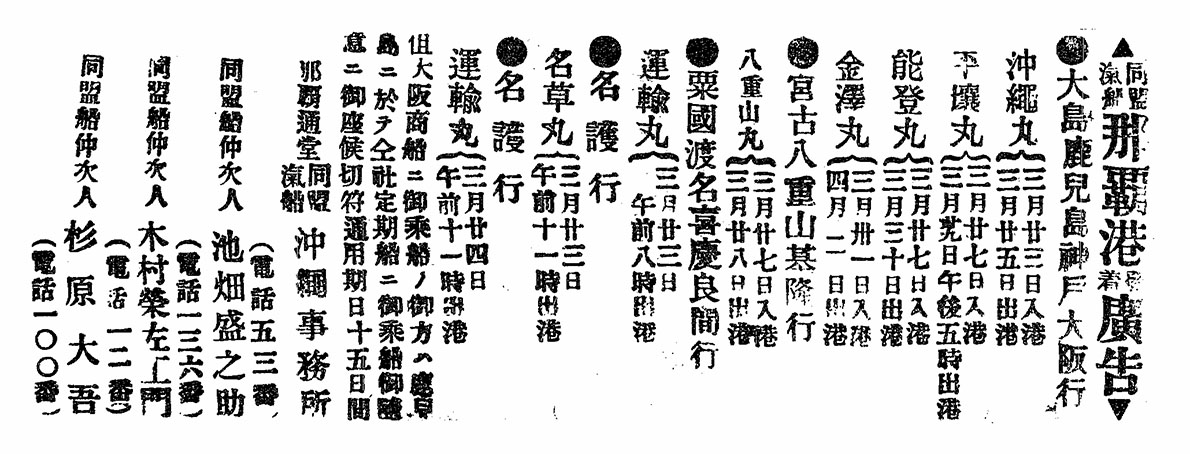 ▲同盟汽船那覇港發着廣告▼
●大島鹿兒島神戶大阪行
沖繩丸
三月廿三日入港
三月廿五日出港
平壤丸
三月廿七日入港
三月廿九日午後五時出港
能登丸
三月廿七日入港
三月三十日出港
金澤丸
三月卅一日入港
四月二日出港
●宮古八重山基隆行
八重山丸
三月廿七日入港
三月廿八日出港
●粟國渡名喜慶良間行
運輸丸
三月廿三日
午前八時出港
●名護行
名草丸
三月廿三日
午前十一時出港
●名護行
運輸丸
三月廿四日
午前十一時出港
但大阪商船ニ御乘船ノ御方ハ鹿兒
島ニ於テ仝社定期船ニ御乘船御隨
意ニ御座候切符通用期日十五日間
那覇通堂 同盟汽船 沖繩事務所
(電話五三番)
同盟船仲次人 池畑盛之助
(電話一三六番)
同盟船仲次人 木村榮左工門
(電話一二番)
同盟船仲次人 杉原大吾
(電話一〇〇番)